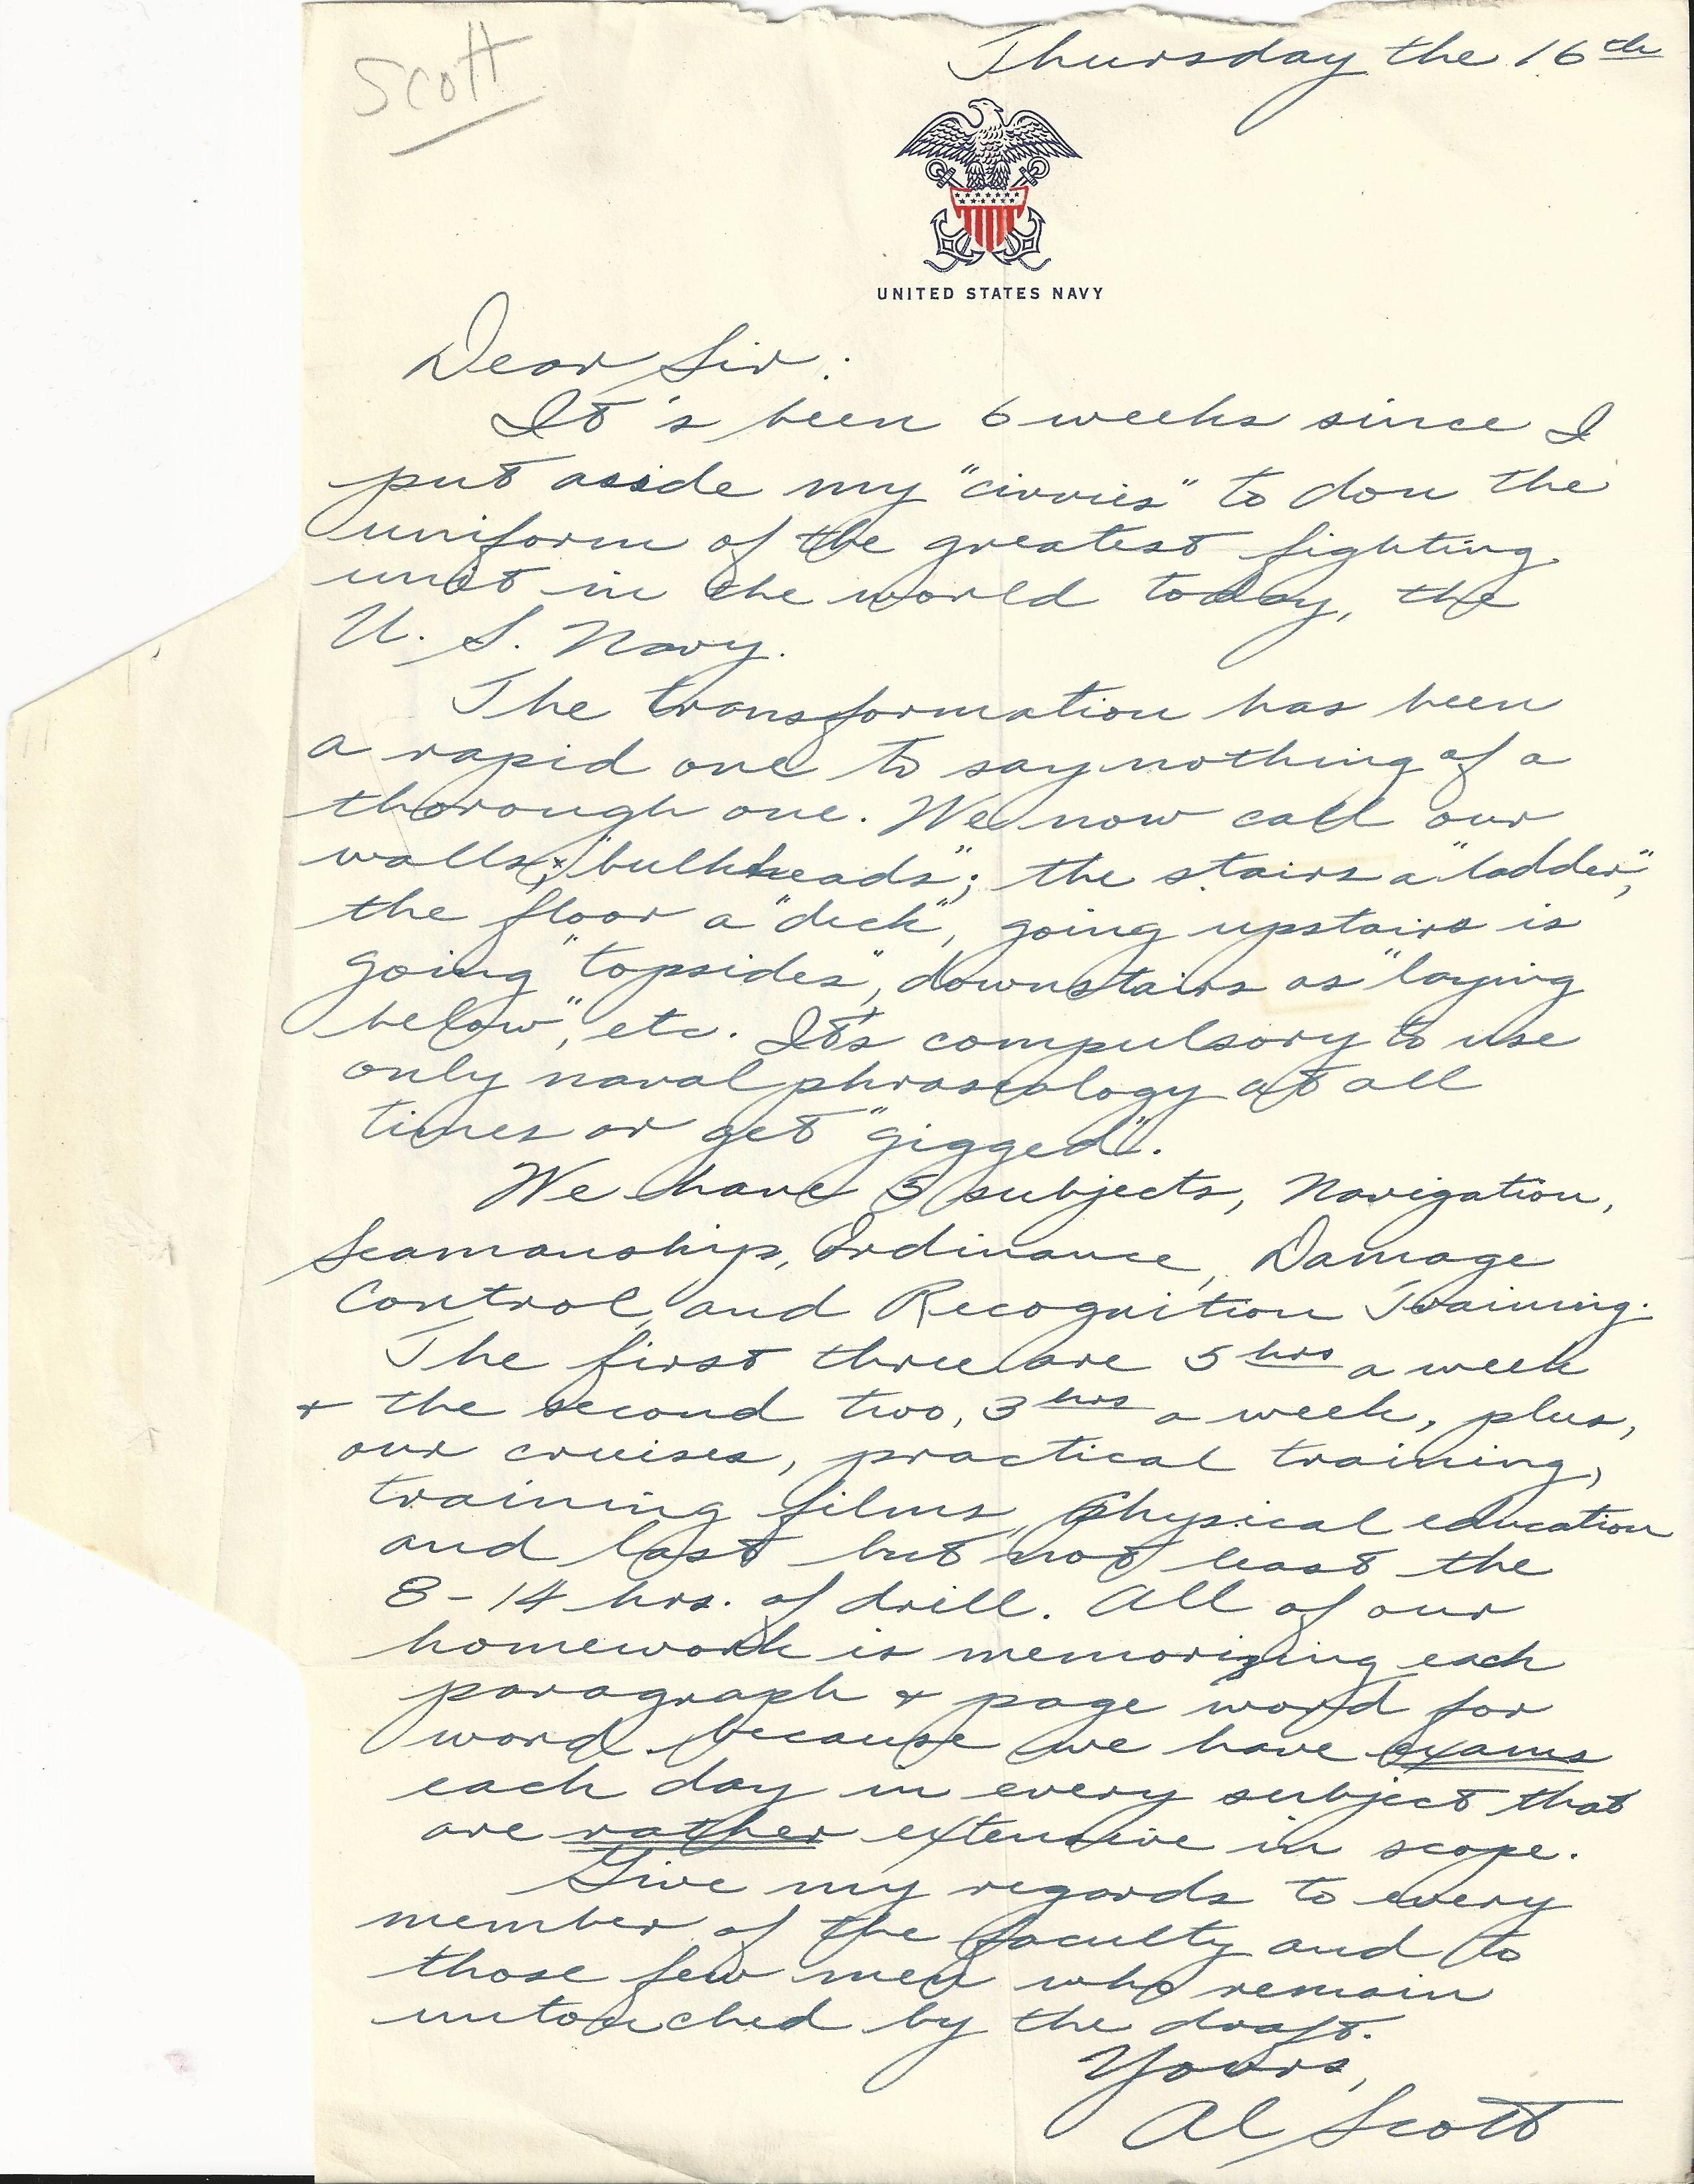 Scott
Thursday the 16th
UNITED STATES NAVY
Dear Sir:
It's been 6 weeks since I
put aside my "civvies" to don the
uniform of the greatest fighting
unit in the world today, the
U. S. Navy.
The transformation has been
a rapid one to say nothing of a
thorough one. We now call our
walls, "bulkheads"; the stairs a "ladder",
the floor a "deck", going upstairs is
going "topsides", downstairs as "laying
below", etc. It's compulsory to use
only naval phraseology at all
times or get "gigged".
We have 5 subjects, Navigation,
Seamanship, Ordinance, Damage
Control, and Recognition Training.
The first three are 5 hrs a week
& the second two, 3 hrs a week, plus,
our cruises, practical training,
training films, Physical education
and last but not least the
8-14 hrs. of drill. All of our
homework is memorizing each
paragraph & page word for
word because we have exams
each day in every subject that
are rather extensive in scope.
Give my regards to every
member of the faculty and to
those few men who remain
untouched by the draft.
Yours,
Al Scott